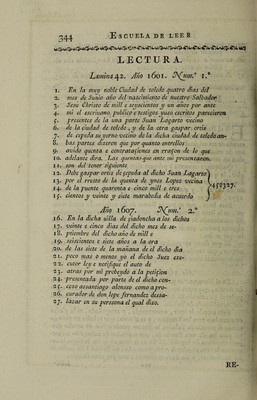 344 ESCUELA DE LEER
LECTURA.
Lamina 42. Año 1601. Num.º 1.º
1. En la muy noble Ciudad de toledo quatro dias del
2. mes de Junio año del nascimiento de nuestro Saluador
3. Jesu Christo de mill e seyscientos y un años por ante
4. mi el escriuano publico e testigos yuso escritos parecieron
5. presentes de la una parte Juan Lagarto vecino
6. de la ciudad de toledo, y de la otra gaspar ortiz
7. de cepeda su yerno vecino de la dicha ciudad de toledo an-
8. bas partes dixeron que por quanto entrellos
9. avido quenta e contrataçiones en rraçon de lo que
10. adelante dira. Las quentas que ante mi presentaron.
11. son del tenor siguiente
12. Debe gaspar ortiz de cepeda al dicho Juan Lagarto
13. por el rresto de la quenta de ynes Lopez vecina
14. de la puente quarenta e cinco mill e tres
15. cientos y veinte y siete marabedis de acuerdo
450327.
Año 1607. Num.º 2.º
16. En la dicha uilla de madoncha a los dichos
17. veinte e cinco dias del dicho mes de se-
18. ptiembre del dicho año de mill e
19. seiscientos e siete años a la ora
20. de las siete de la mañana de el dicho dia
21. poco mas o menos yo el dicho Juez exe-
22. cutor ley e notifique el auto de
23. atras por mi probeydo a la petiçion
24. presentada por parte de el dicho con-
25. cexo assantiago alonsso como a pro-
26. curador de don lope fernandez dessa-
27. lazar en su perssona el qual disso.
RE-